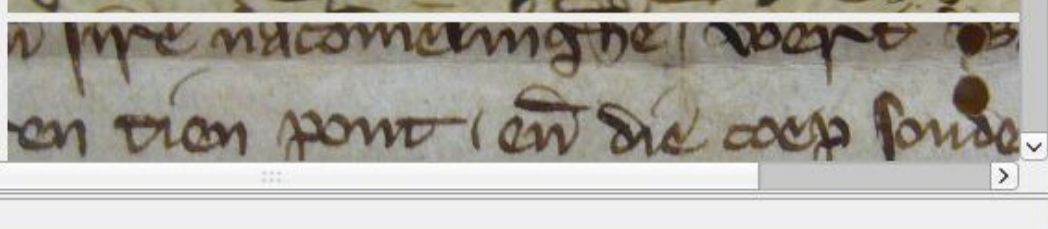 sire nacomelinghe wert
en tien pont en̄ die coep sonde